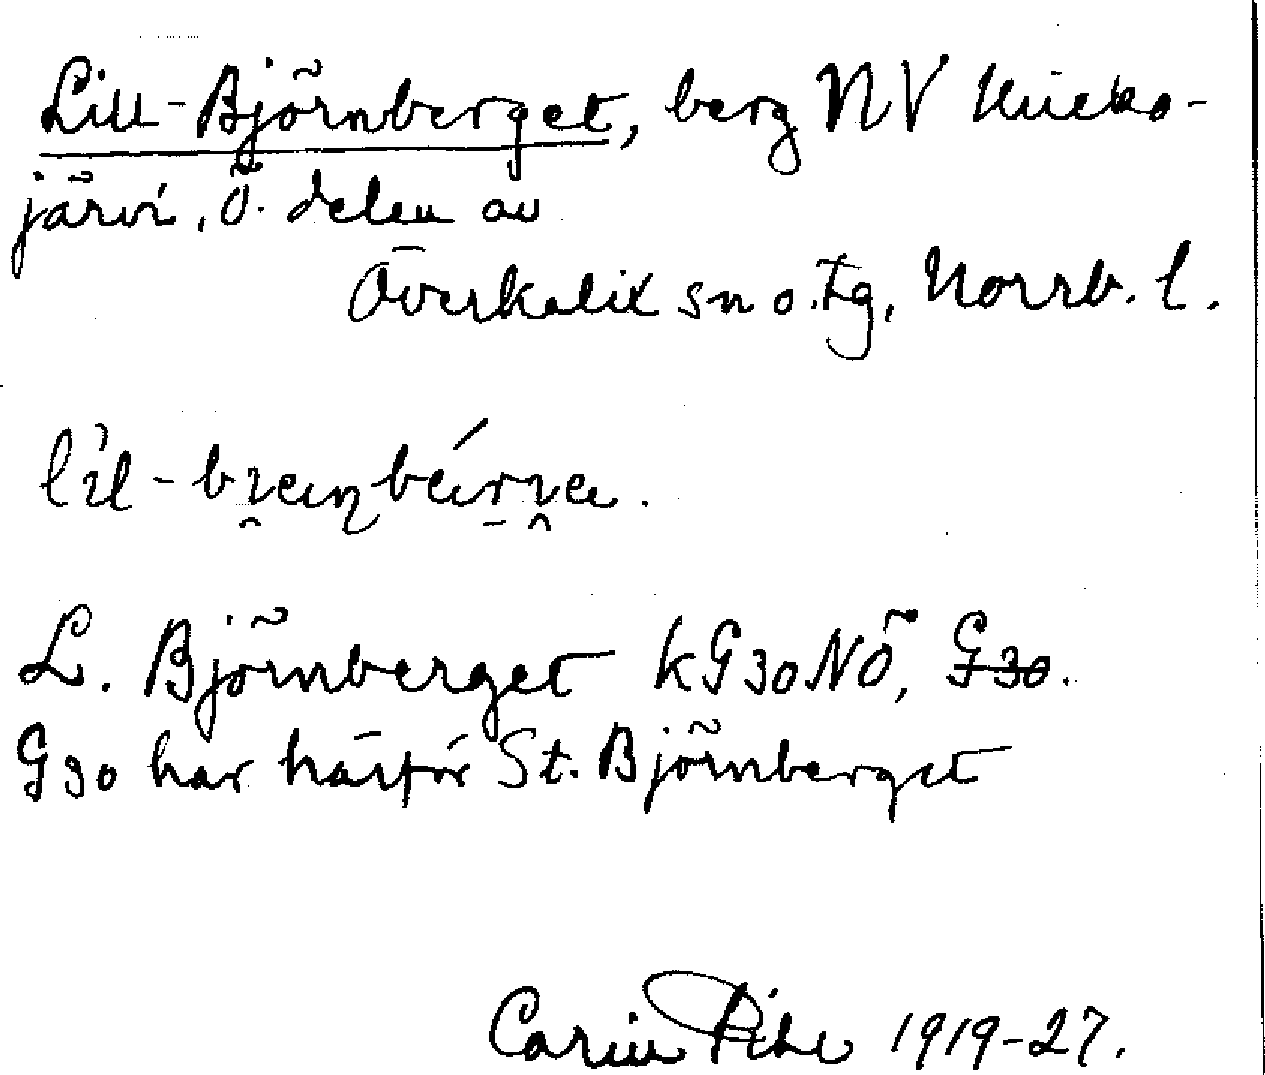 Lill-Björnberget, berg NV
järvi, Ö. delen av
Överkalix sn o. tg, Norrb. l.
L. Björnberget kG30NÖ, G30.
G30 har härför St. Björnberget
Carin Pihl 1919-27.